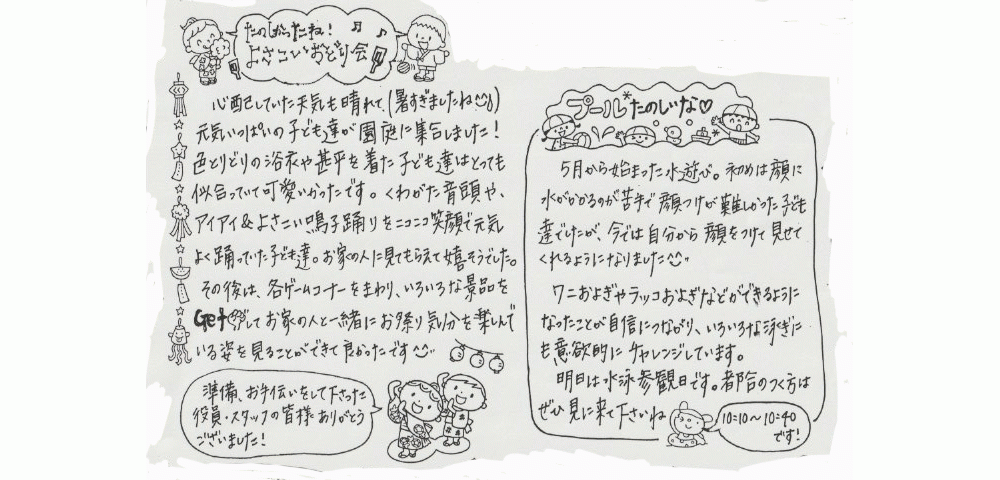 たのしかったね!
よさこいおどり会
心配していた天気も晴れて、(暑すぎましたね)
元気いっぱいの子ども達が園庭に集合しました!
色とりどりの浴衣や甚平を着た子ども達はとっても
似合っていて可愛いかったです。くわがた音頭や、
アイアイ&よさこい鳴子踊りをニコニコ笑顔で元気
よく踊っていた子ども達。お家の人に見てもらえて嬉しそうでした。
その後は、各ゲームコーナーをまわり、いろいろな景品を
Getしてお家の人と一緒にお祭り気分を楽しんで
いる姿を見ることができて良かったです
準備、お手伝いをして下さった
役員・スタッフの皆様ありがとう
ございました!
プールたのしいな♡
5月から始まった水遊び。初めは顔に
水がかかるのが苦手で顔つけが難しかった子ども
達でしたが、今では自分から顔をつけて見せて
くれるようになりました
ワニおよぎやラッコおよぎなどができるように
なったことが自信につながり、いろいろな泳ぎに
も意欲的にチャレンジしています。
明日は水泳参観日です。都合のつく方は
ぜひ見に来て下さいね
10:10〜10:40
です!